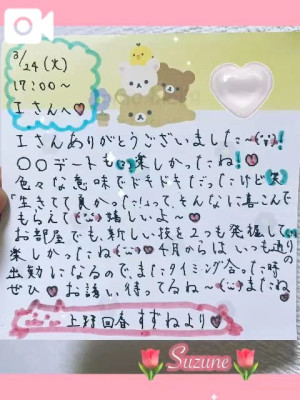 3/24(火)
17:00〜
Iさんへ
Iさんありがとうございました〜(¨)!
○○デートも楽しかったね!
色々な意味でドキドキだったけど笑
"生きてて良かった!"って、そんなに喜こんで
もらえて(¨)嬉しいよ〜
お部屋でも、新しい技を2つも発掘してい
楽しかったね(¨)4月からはいつも通りの
出勤になるので、またタイミング合った時
ぜひ お誘い待ってるね〜(¨)またね
上野回春 すずねより
Suzune